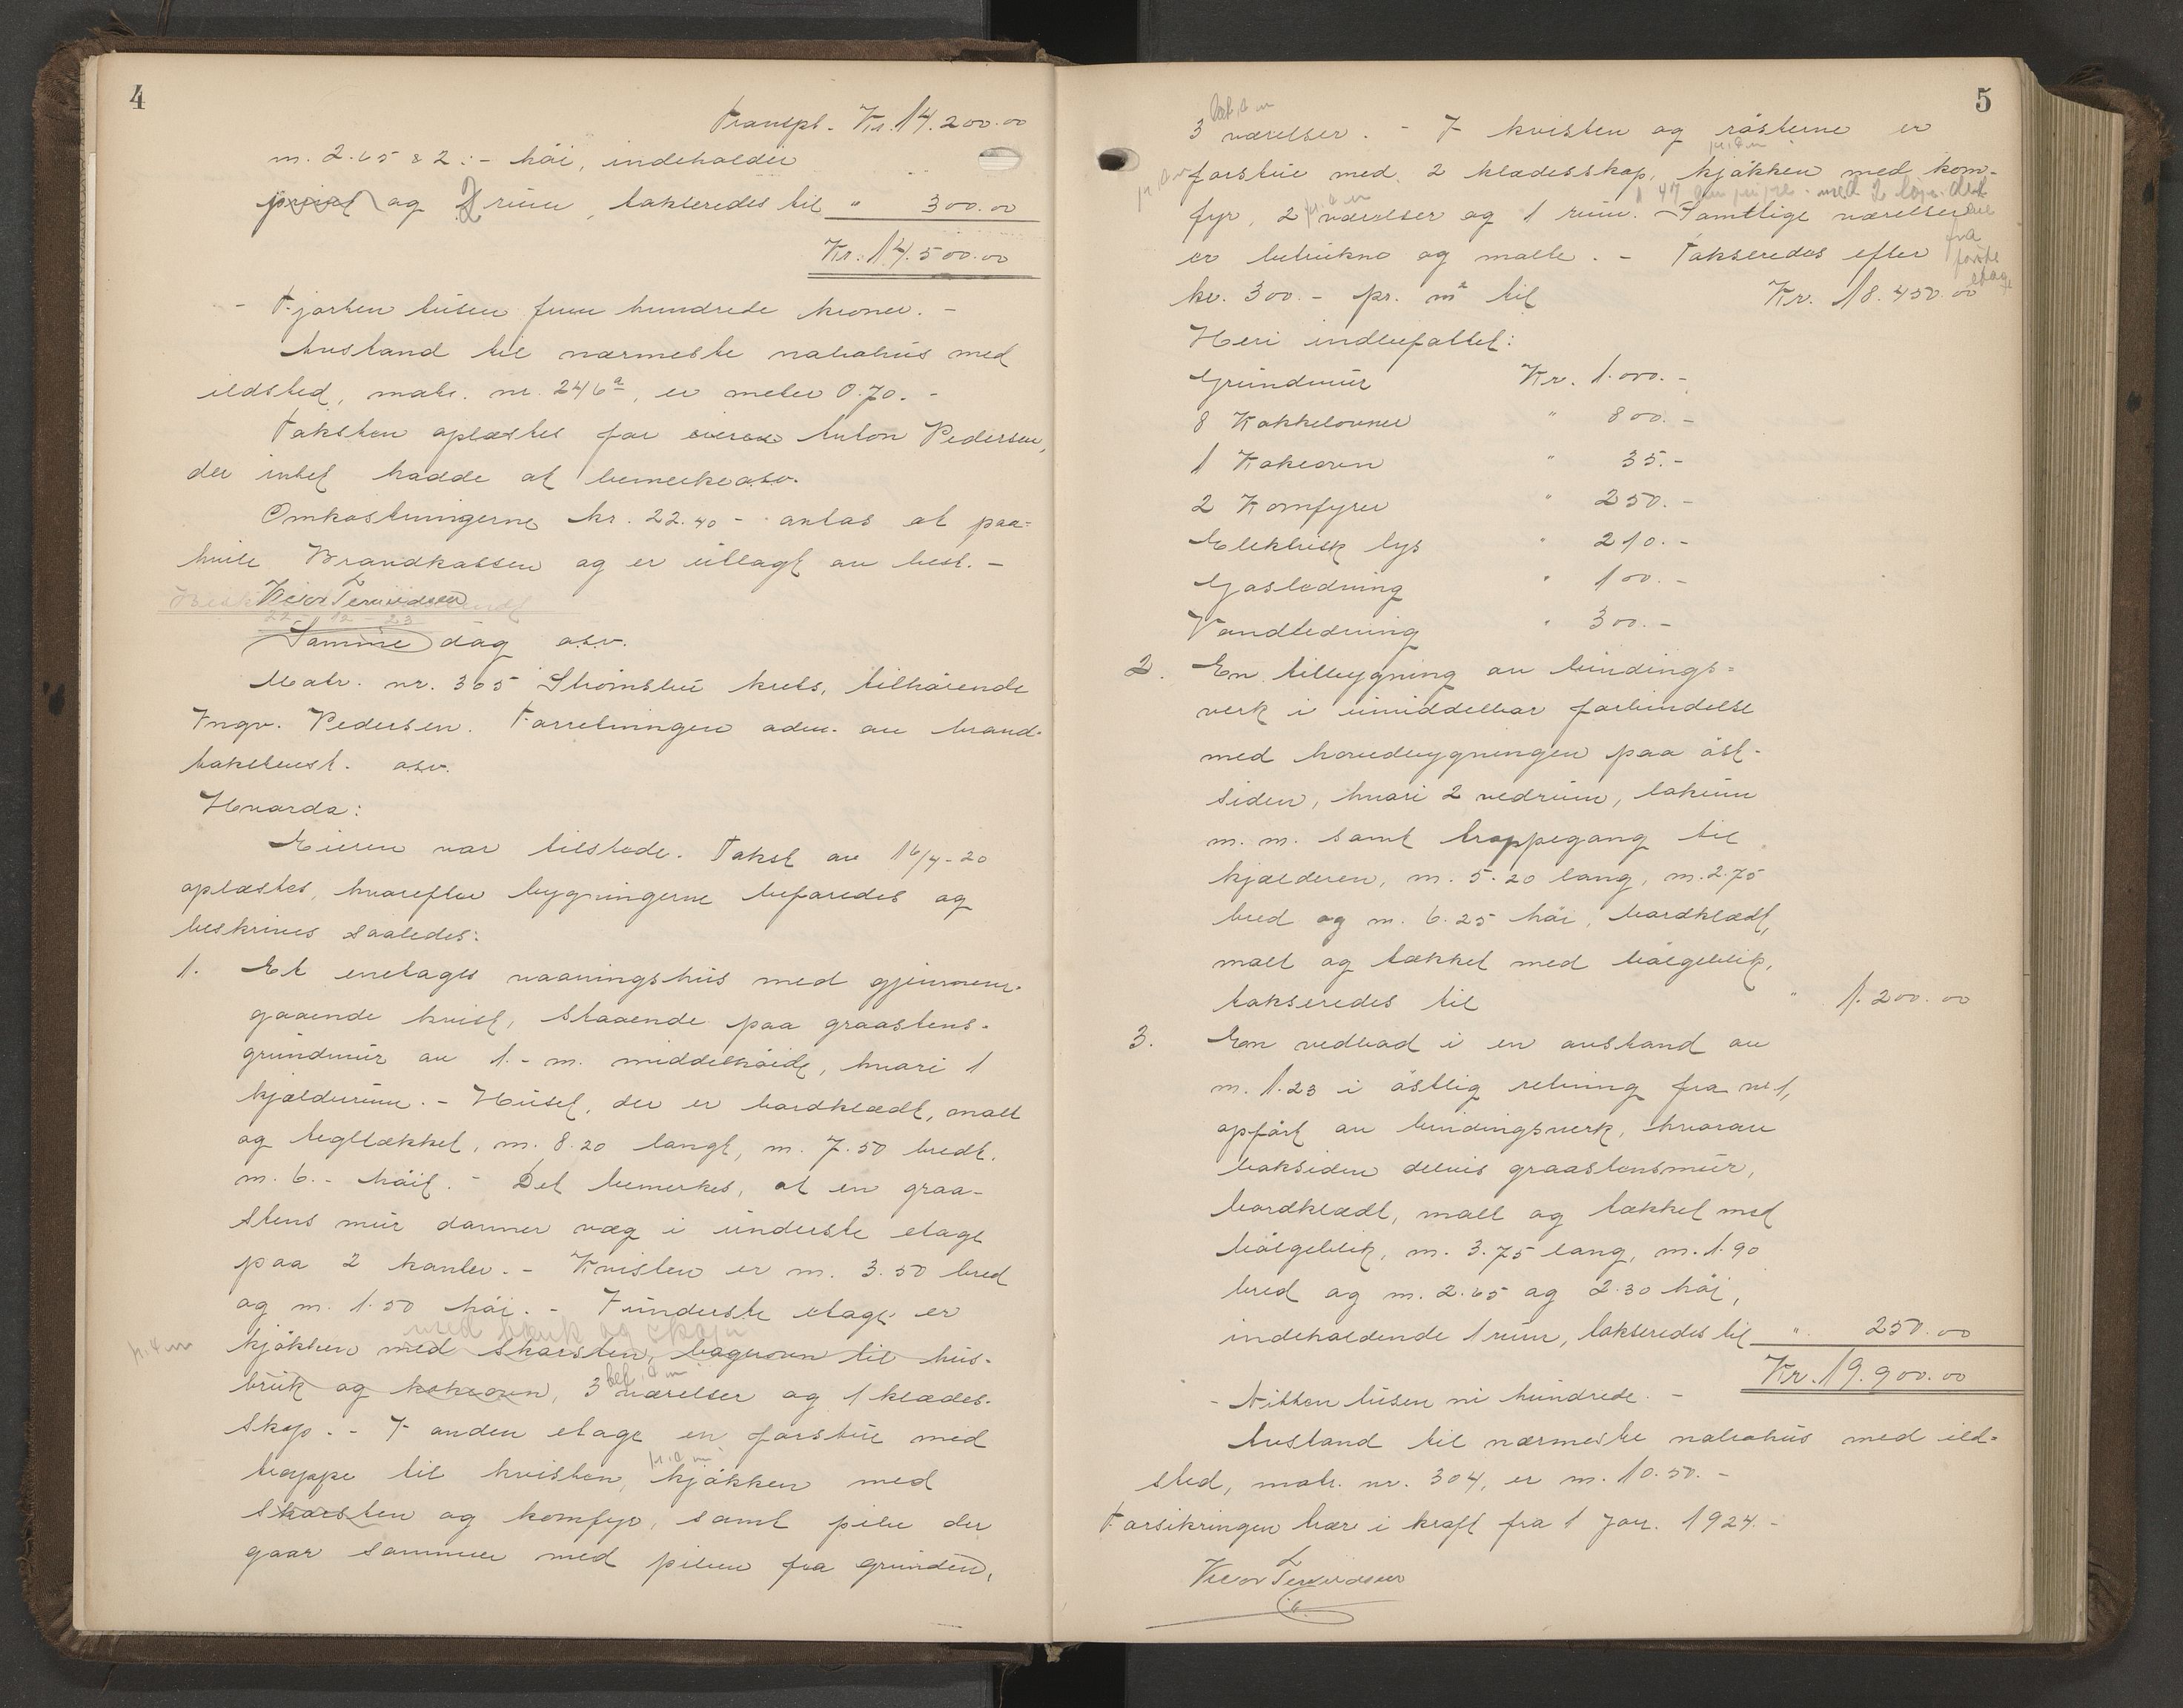 4
Transpt. Kr. 14.200.00
m. 2.65 & 2.- höi, indeholder
privet og 2 rum, takseredes til " 300.00
Kr. 14.500.00
- Fjorten tusen fem hundrede kroner. -
Avstand til nærmeste nabohus med
ildsted, matr. nr. 246a, er meter 0.70. -
Taksten oplæstes for eieren Anton Pedersen,
der intet hadde at bemerke o.s.v.
Omkostningerne kr. 22.40 - antas at paa-
hvile Brandkassen og er utlagt av best. -
22-12-23
Samme dag o.s.v.
Matr. nr. 305 Strömsbu krets, tilhörende
Ingv. Pedersen. Forretningen adm. av brand-
takstbest. o.s.v.
Hvorda:
Eieren var tilstede. Takst av 16/4-20
oplæstes, hvorefter bygningerne befaredes og
beskrives saaledes:
1. Et enetages vaaningshus med gjennem-
gaaende kvist, staaende paa graastens-
grundmur av 1.- m. middelhöide, hvori 1
kjælderrum. - Huset, der er bordklædt, malt
og tegltækket, m. 8.20 langt, m. 7.50 bredt,
m. 6.- höit. - Det bemerkes, at en graa-
stens mur danner væg i underste etage
paa 2 kanter. - Kvisten er m. 3.50 bred
og m. 1.50 höi. - I underste etage er
kjökken med skorsten, bagerovn til hus-
bruk og kokeovn, 3 værelser og 1 klædes-
skap. - I anden etage en forstue med
trappe til kvisten, kjökken med
skorsten og komfyr, samt pibe der
gaar sammen med piben fra grunden,
5
3 værelser. - I kvisten og rösterne er
forstue med 2 klædesskap, kjökken med kom-
fyr, 2 værelser og 1 rum. - Samtlige værelser
er betrukne og malte. - Takseredes efter
fra
første
etage
kr. 300.- pr. m² til Kr. 18.450.00
Heri indbefattet:
Grundmur Kr. 1.000.-
8 Kakkelovner " 800.-
1 Kokeovn " 35.-
2 Komfyrer " 250.-
Elektrisk lys " 210.-
Gasledning " 100.-
Vandledning " 300.-
2. En tilbygning av bindings-
verk i umiddelbar forbindelse
med hovedbygningen paa öst-
siden, hvori 2 vedrum, lokum
m.m. samt trappegang til
kjælderen, m. 5.20 lang, m. 2.75
bred og m. 6.25 höi, bordklædt,
malt og tækket med bölgeblik,
takseredes til " 1.200.00
3. En vedbod i en avstand av
m. 1.23 i östlig retning fra nr 1,
opfört av bindingsverk, hvorav
baksiden delvis graastensmur,
bordklædt, malt og tækket med
bölgeblik, m. 3.75 lang, m. 1.90
bred og m. 2.65 og 2.30 höi,
indeholdende 1 rum, takseredes til " 250.00
Kr. 19.900.00
- Nitten tusen ni hundrede. -
Avstand til nærmeste nabohus med ild-
sted, matr. nr. 304, er m. 10.50. -
Forsikringen trær i kraft fra 1 Jan. 1924. -